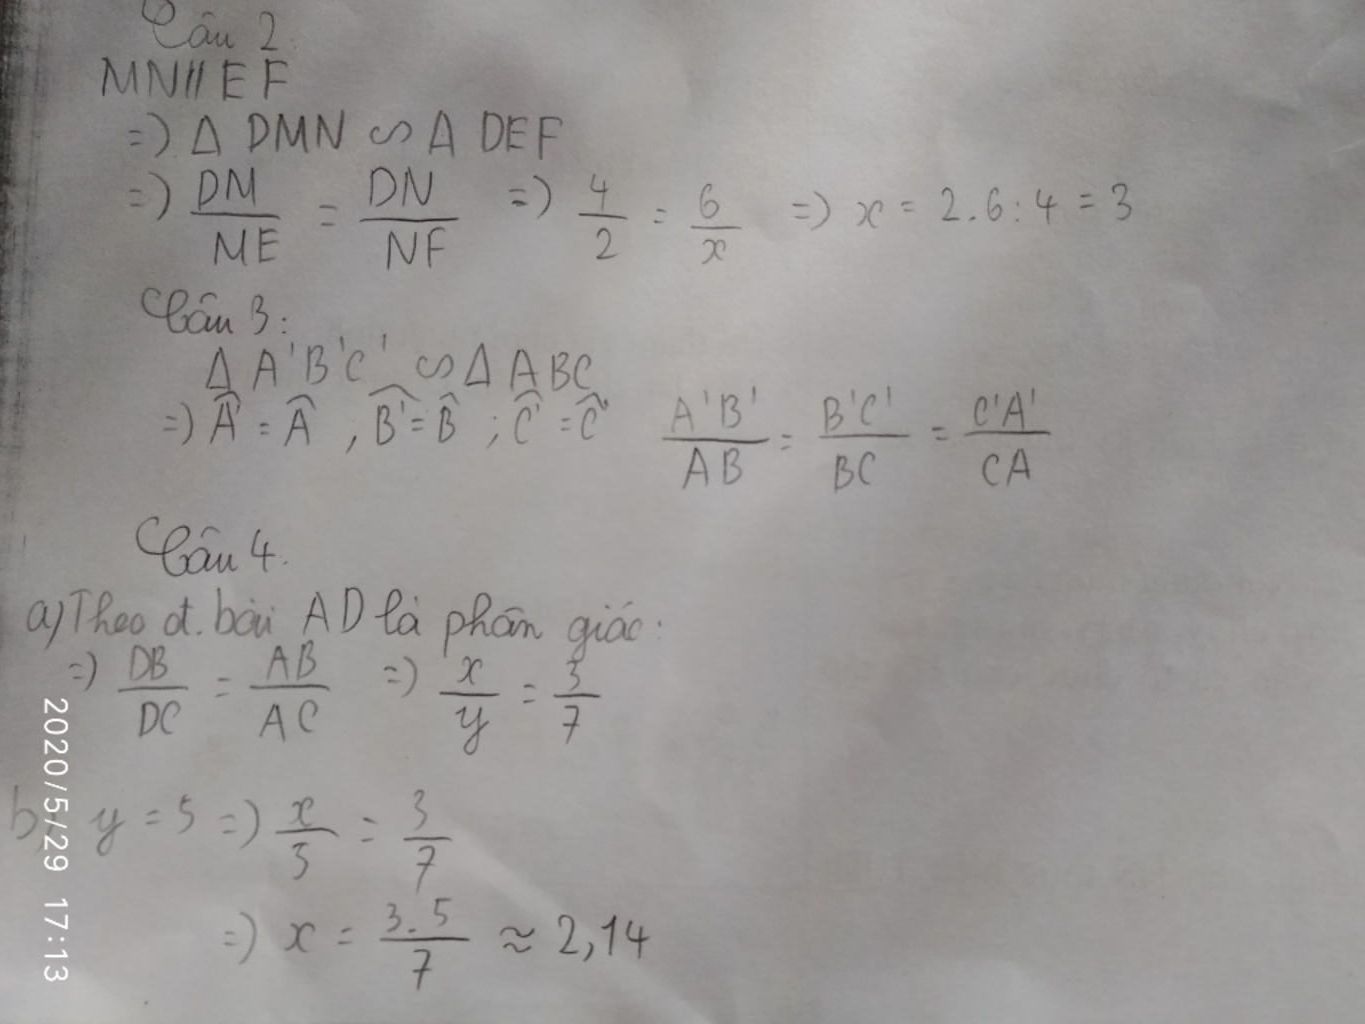 Câu 2.
MN // EF
=) Δ DMN ∽ Δ DEF
=) DM/ME = DN/NF =) 4/2 = 6/x =) x = 2.6:4 = 3
Câu 3:
Δ A'B'C' ∽ Δ ABC
=) Â' = Â , B̂' = B̂ ; Ĉ' = Ĉ A'B'/AB = B'C'/BC = C'A'/CA
Câu 4.
a) Theo đ. bài AD là phân giác:
=) DB/DC = AB/AC =) x/y = 3/7
b, y = 5 =) x/5 = 3/7
=) x = 3.5/7 ≈ 2,14
2020/5/29 17:13